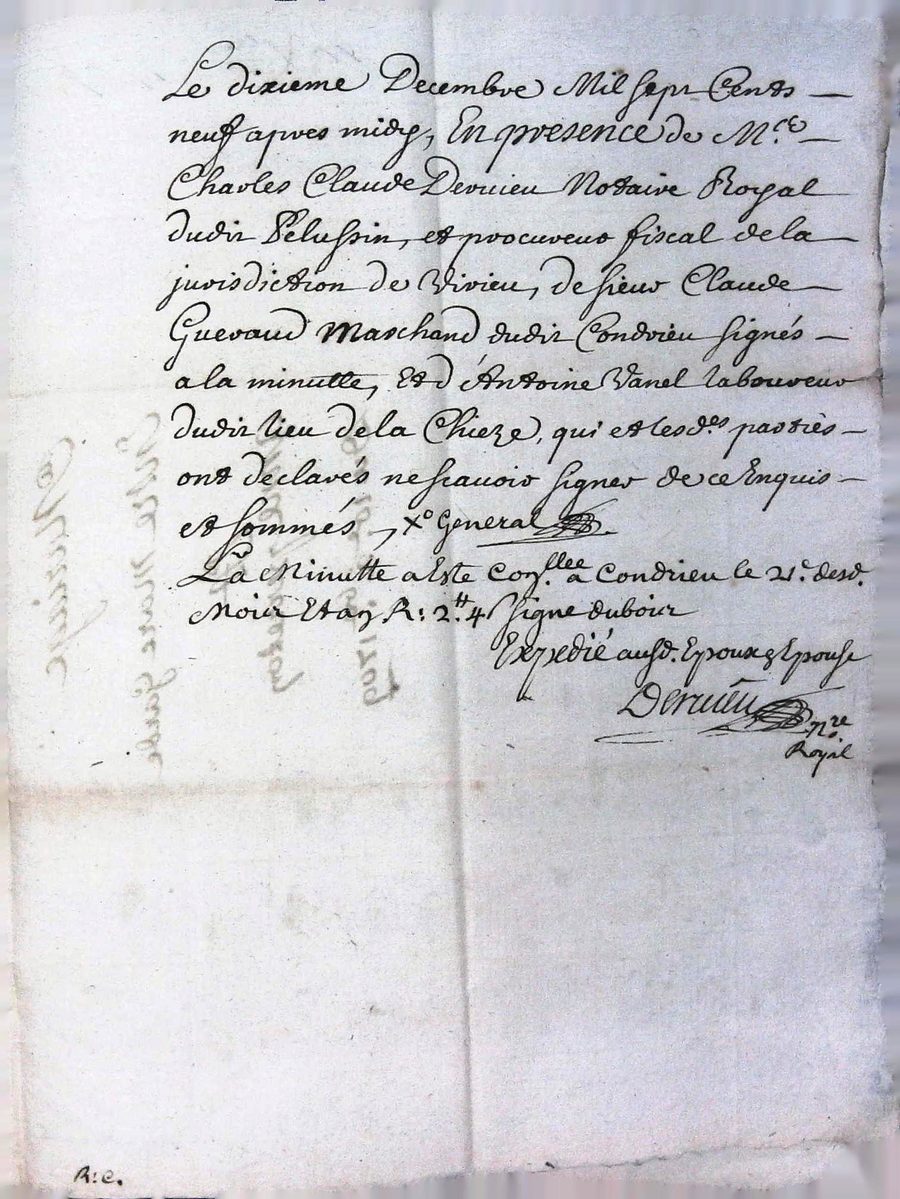 Le dixieme Decembre Mil sept Cents
neuf apres midy, En presence de M.re
Charles Claude Dervieu Notaire Royal
dudit Pelussin, et procureur fiscal de la
jurisdiction de Virieu, de sieur Claude
Gueraud Marchand dudit Condrieu signés
a la minutte, Et d'Antoine Vanel laboureur
dudit lieu de la Chieze, qui et lesd.es parties
ont declarés ne scavoir signer de ce Enquis
et sommés, Xo General
La Minutte a Este con.llee a Condrieu le 21.e desd.
Mois Et an R: 2.tt 4 signe dubour
Expedié ausd. Epoux & Epouse
Dervieu
N.re
Royal
R: C.